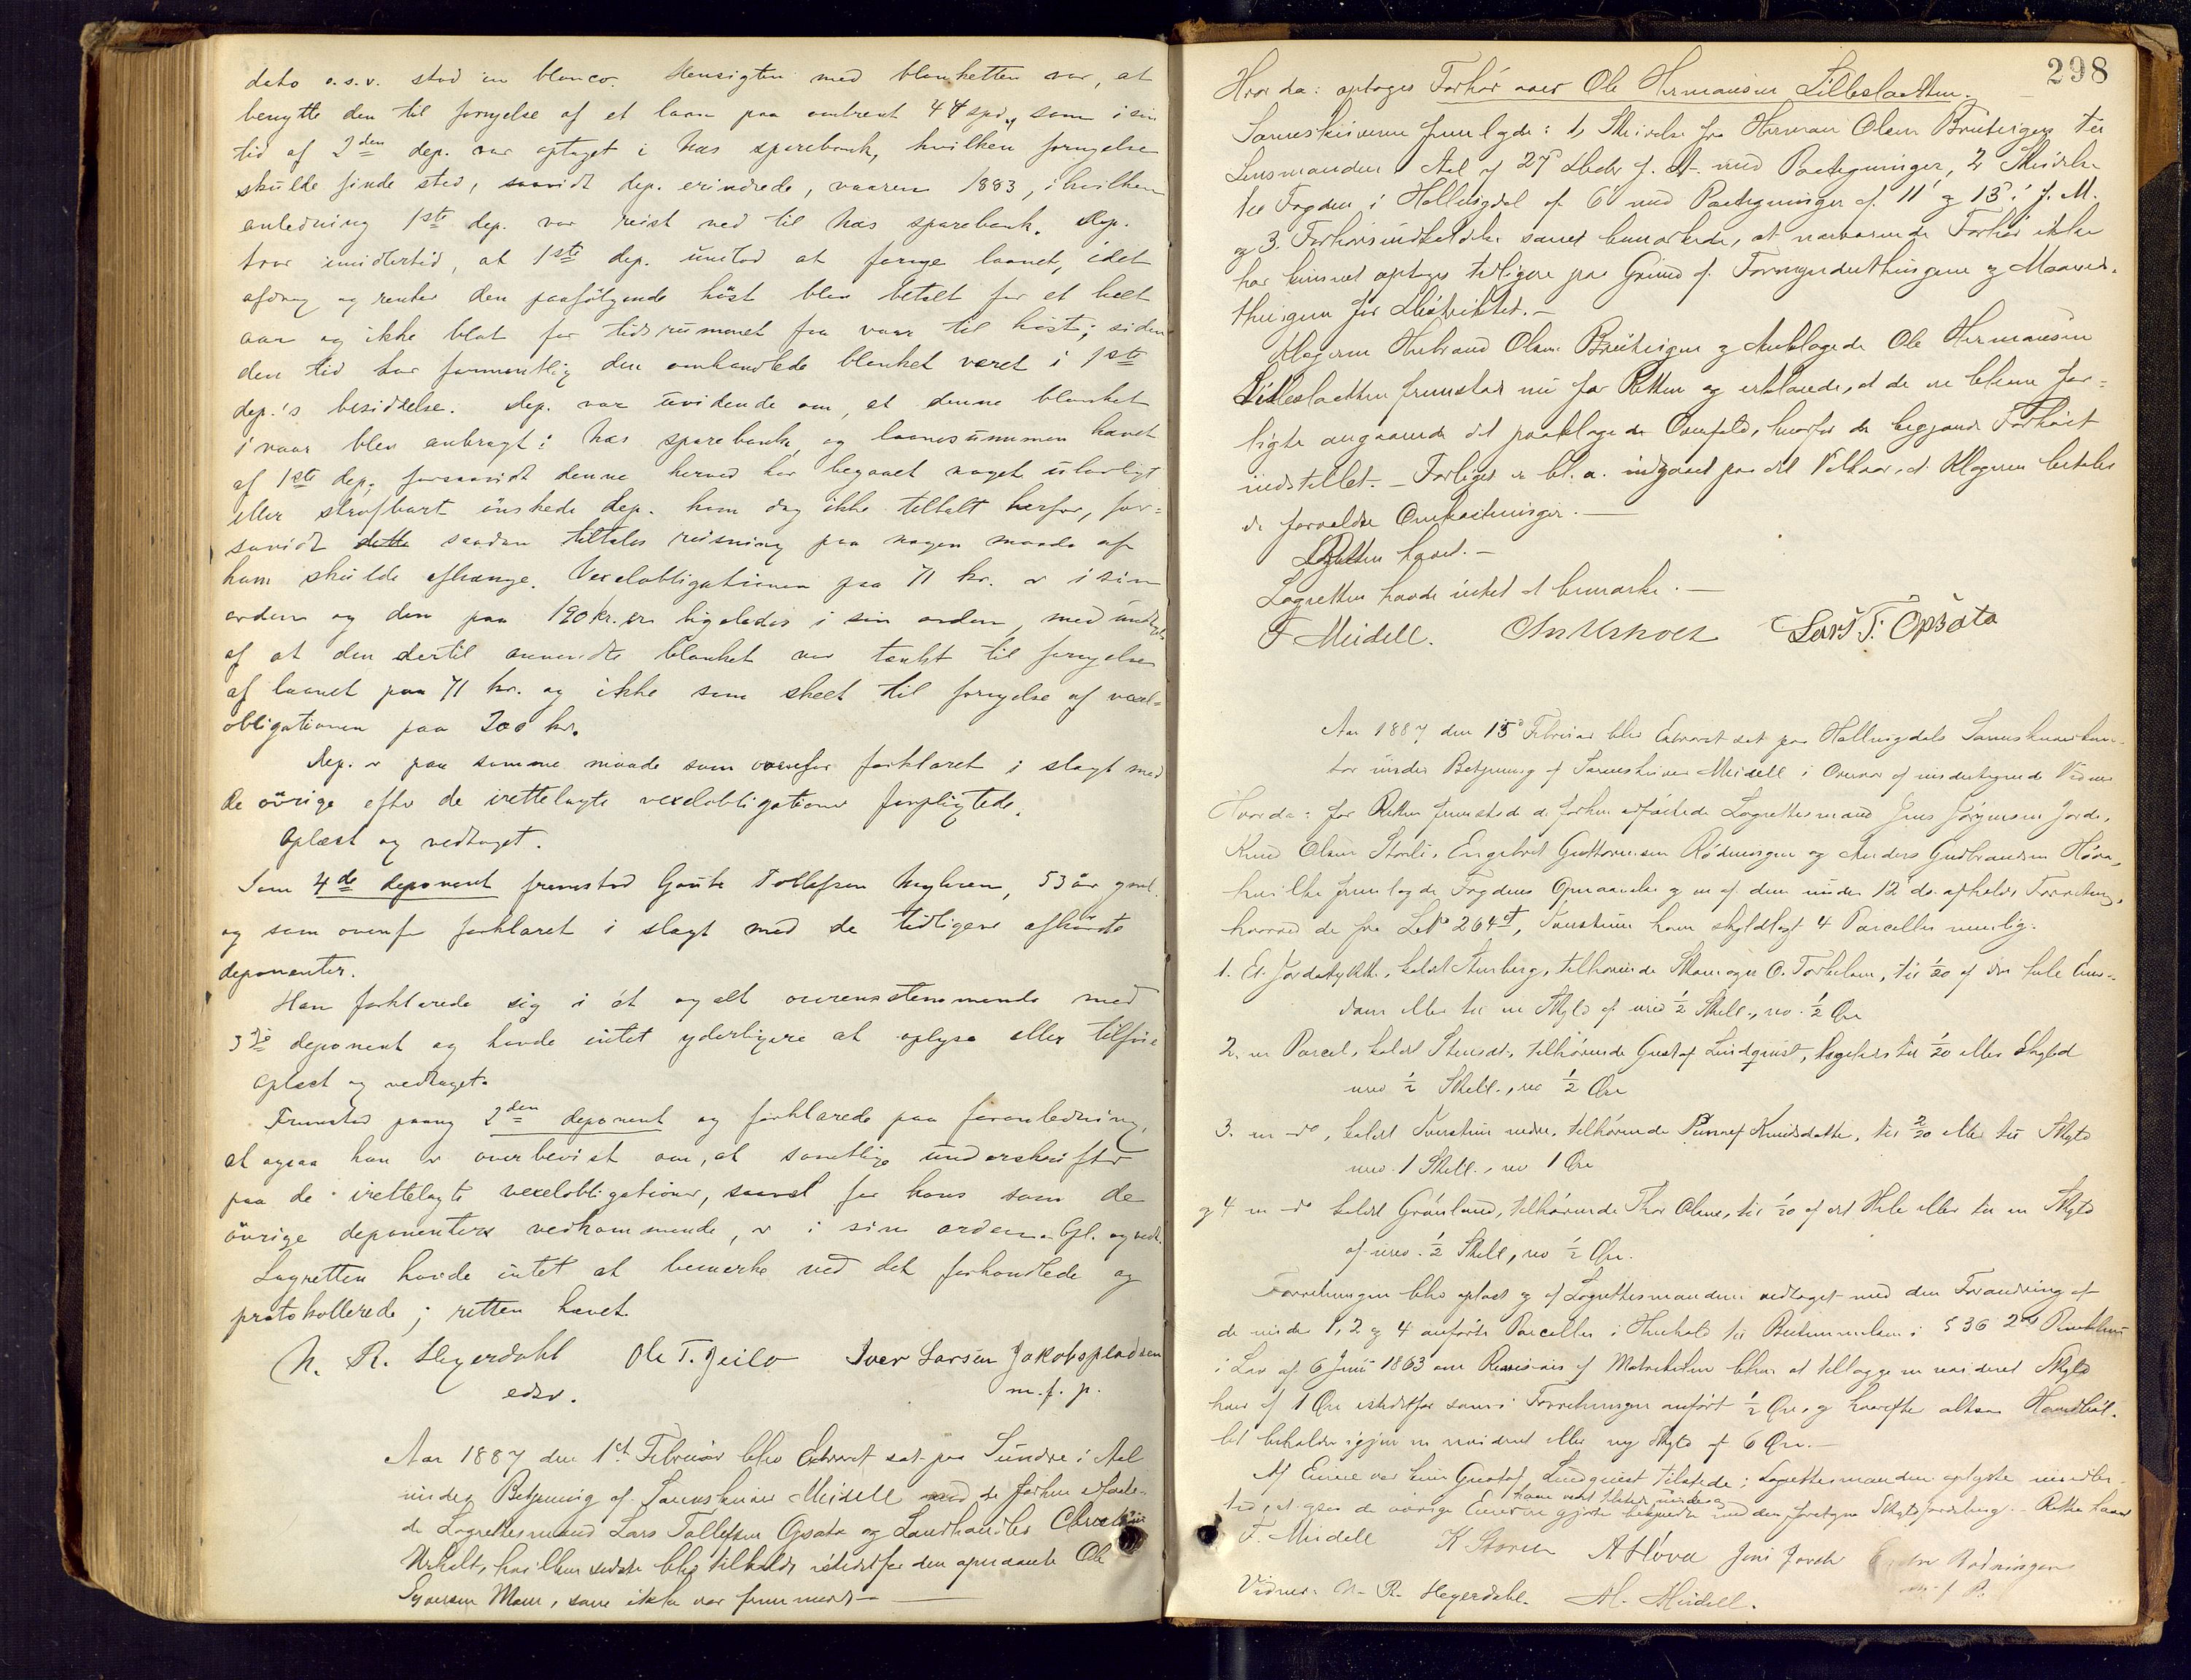 dato o.s.v. stod in blanco. Hensigten med blanketten var, at
benytte den til fornyelse af et laan paa omtrent 44 spd, som i sin
tid af 2den dep. var optaget i Næs sparebank, hvilken fornyelse
skulde finde sted, saavidt dep. erindrede, vaaren 1883, i hvilken
anledning 1ste dep. var reist ned til Næs sparebank. Dep.
tror imidlertid, at 1ste dep. undlod at fornye laanet, idet
afdrag og renter den paafølgende høst blev betalt for et helt
aar og ikke blot for tidsrummet fra vaar til høst; siden
den tid har formentlig den omhandlede blanket været i 1ste
dep.'s besiddelse. Dep. var uvidende om, at denne blanket
i vaar blev anbragt i Næs sparebank, og laanesummen hævet
af 1ste dep; forsaavidt denne herved har begaaet noget ulovligt
eller strafbart ønskede dep. ham dog ikke tiltalt herfor, for-
saavidt dette saadan tiltales reisning paa nogen maade af
ham skulde afhænge. Vexelobligationen paa 71 kr. er i sin
orden og den paa 190 kr. er ligeledes i sin orden, med undtag.
af at den dertil anvendte blanket var tænkt til fornyelse
af laanet paa 71 kr. og ikke som skeet til fornyelse af vexel-
obligationen paa 200 kr.
Dep. er paa samme maade som ovenfor forklaret i slægt med
de øvrige efter de irettelagte vexelobligationer forpligtede.
Oplæst og vedtaget.
Som 4de deponent fremstod Goute Tollefsen Myhren, 53 år gml.
og som ovenfor forklaret i slægt med de tidligere afhørte
deponenter.
Han forklarede sig i ét og alt overensstemmende med
3die deponent og havde intet yderligere at oplyse eller tilføie
Oplæst og vedtaget.
Fremstod paany 2den deponent og forklarede paa foranledning,
at ogsaa han er overbevist om, at samtlige underskrifter
paa de irettelagte vexelobligationer, saavel for hans som de
øvrige deponenters vedkommende, er i sin orden. Opl. og vedt.
Lagretten havde intet at bemerke ved det forhandlede og
protokollerede; retten hævet.
N. R. Heyerdahl Ole T. Geilo Iver Larsen Jakobspladsen
edsv. m. f. p.
Aar 1887 den 1st Februar blev Extraret sat paa Sundre i Aal
under Betjening af Sorenskriver Meidell med de forhen edfæste-
de Lagrettesmænd Lars Tollefsen Opsata og Landhandler Christian
Urholt, hvilken sidste blev tilkaldt istedetfor den opnævnte Ole
Syversen Moen, som ikke var fremmødt.
298
Hvor da: optoges Forhør over Ole Hermansen Lilleslaatten.
Sorenskriveren fremlagde: 1, Skrivelse fra Herman Olsen Bruteigen til
Lensmanden i Aal af 27d Decbr f. A. med Paategninger, 2, Skrivelse
til Fogden i Hallingdal af 6' med Paategninger af 11' og 13' f. M.
og 3. Forhørsudsteldelse samt bemærkede, at nærværende Forhør ikke
har kunnet optages tidligere paa Grund af Formynderthingene og Maaneds-
thingene for Distriktet. —
Klageren Herbrand Olsen Bruteigen og Anklagede Ole Hermansen
Lilleslaatten fremstod nu for Retten og erklærede, at de er blevne for-
ligte angaaende det paaklagede Overfald, hvorfor de begjærede Forhøret
indstillet. — Forliget er bl. a. indgaaet paa det Vilkaar, at Klageren betaler
de forvoldte Omkostninger. —
Retten hævet. —
Lagretten havde intet at bemærke. —
F Meidell. Chr Urholt Lars T. Opsata
Aar 1887 den 15d Februar blev Extraret sat paa Hallingdals Sorenskriverkon-
tor under Betjening af Sorenskriver Meidell i Overvær af undertegnede Vidner
Hvor da: for Retten fremstod de forhen edfæstede Lagrettesmænd Jens Jørgensen Jorde,
Knud Olsen Storli, Engebret Guttormsen Rødningen og Anders Gudbrandsen Høva,
hvilke fremlagde Fogdens Opnævnelse og en af dem under 12 ds. afholdt Forretning,
hvorved de fra LNo 264ct, Tverstuin have skyldlagt 4 Parceller nemlig:
1. Et Jordstykke, kaldet Stenberg, tilhørende O. Torkelsen, til 1/20 af den hele Eien-
dom eller til en Skyld af urev 1/2 Skill., rev. 1/2 Øre
2. en Parcel, kaldet Stensæt, tilhørende Gustaf Lindquist, ligeledes til 1/20 eller Skyld
urev 1/2 Skill., rev 1/2 Øre
3. en do, kaldet Tverstuin nedre, tilhørende Knudsdatter, til 2/20 eller til Skyld
urev. 1 Skill., rev 1 Øre
og 4 en do kaldet Grønlund, tilhørende Thor Olsen, til 1/20 af det Hele eller til en Skyld
af urev. 1/2 Skill, rev 1/2 Øre.
Forretningen blev oplæst og af Lagrettesmændene vedtaget med den Forandring at
de under 1, 2 og 4 anførte Parceller i Henhold til Bestemmelsen i § 36 2det Punktum
i Lov af 6 Juni 1863 om Revision af Matrikulen bliver at tillægge en revideret Skyld
hver af 1 Øre istedetfor som i Forretningen anført 1/2 Øre, og hvorefter altsaa Hovedbøl-
let beholder igjen en revideret eller ny Skyld af 6 Øre. —
Af Eierne var kun Gustaf Lindquist tilstede; Lagrettesmændene oplyste imidler-
tid, at ogsaa de øvrige Eiere er gjorte bekjendte med den foretagne Skyldfordeling. — Retten hævet
F. Meidell K Storli A Høva Jens Jorde Rødningen
m. f. P.
Vidner: N. R. Heyerdahl. M. Meidell.